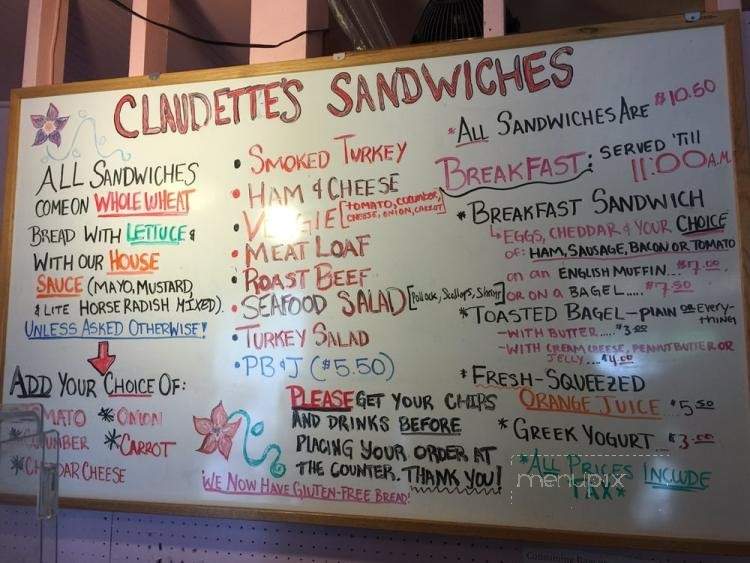 CLAUDETTE'S SANDWICHES
ALL SANDWICHES
COME ON WHOLE WHEAT
BREAD WITH LETTUCE &
WITH OUR HOUSE
SAUCE (MAYO, MUSTARD,
& LITE HORSERADISH MIXED).
UNLESS ASKED OTHERWISE!
ADD YOUR CHOICE OF:
*ONION
*CARROT
CHEESE
• SMOKED TURKEY
• HAM & CHEESE
• VEGGIE [TOMATO, CUCUMBER,
CHEESE, ONION, CARROT]
• MEAT LOAF
• ROAST BEEF
• SEAFOOD SALAD [Pollock, Scallops, Shrimp]
• TURKEY SALAD
• PB & J ($5.50)
PLEASE GET YOUR CHIPS
AND DRINKS BEFORE
PLACING YOUR ORDER AT
THE COUNTER. THANK YOU!
WE NOW HAVE GLUTEN-FREE BREAD!
*ALL SANDWICHES ARE $10.50
BREAKFAST: SERVED 'TILL
11:00 A.M.
*BREAKFAST SANDWICH
EGGS, CHEDDAR & YOUR CHOICE
OF: HAM, SAUSAGE, BACON OR TOMATO
on an ENGLISH MUFFIN... $7.00
OR ON A BAGEL..... $7.50
*TOASTED BAGEL - PLAIN OR EVERY-
THING
-WITH BUTTER..... $3.00
-WITH CREAM CHEESE, PEANUT BUTTER OR
JELLY.... $4.00
*FRESH-SQUEEZED
ORANGE JUICE $5.50
*GREEK YOGURT... $3.00
*ALL PRICES INCLUDE
TAX*
menupix